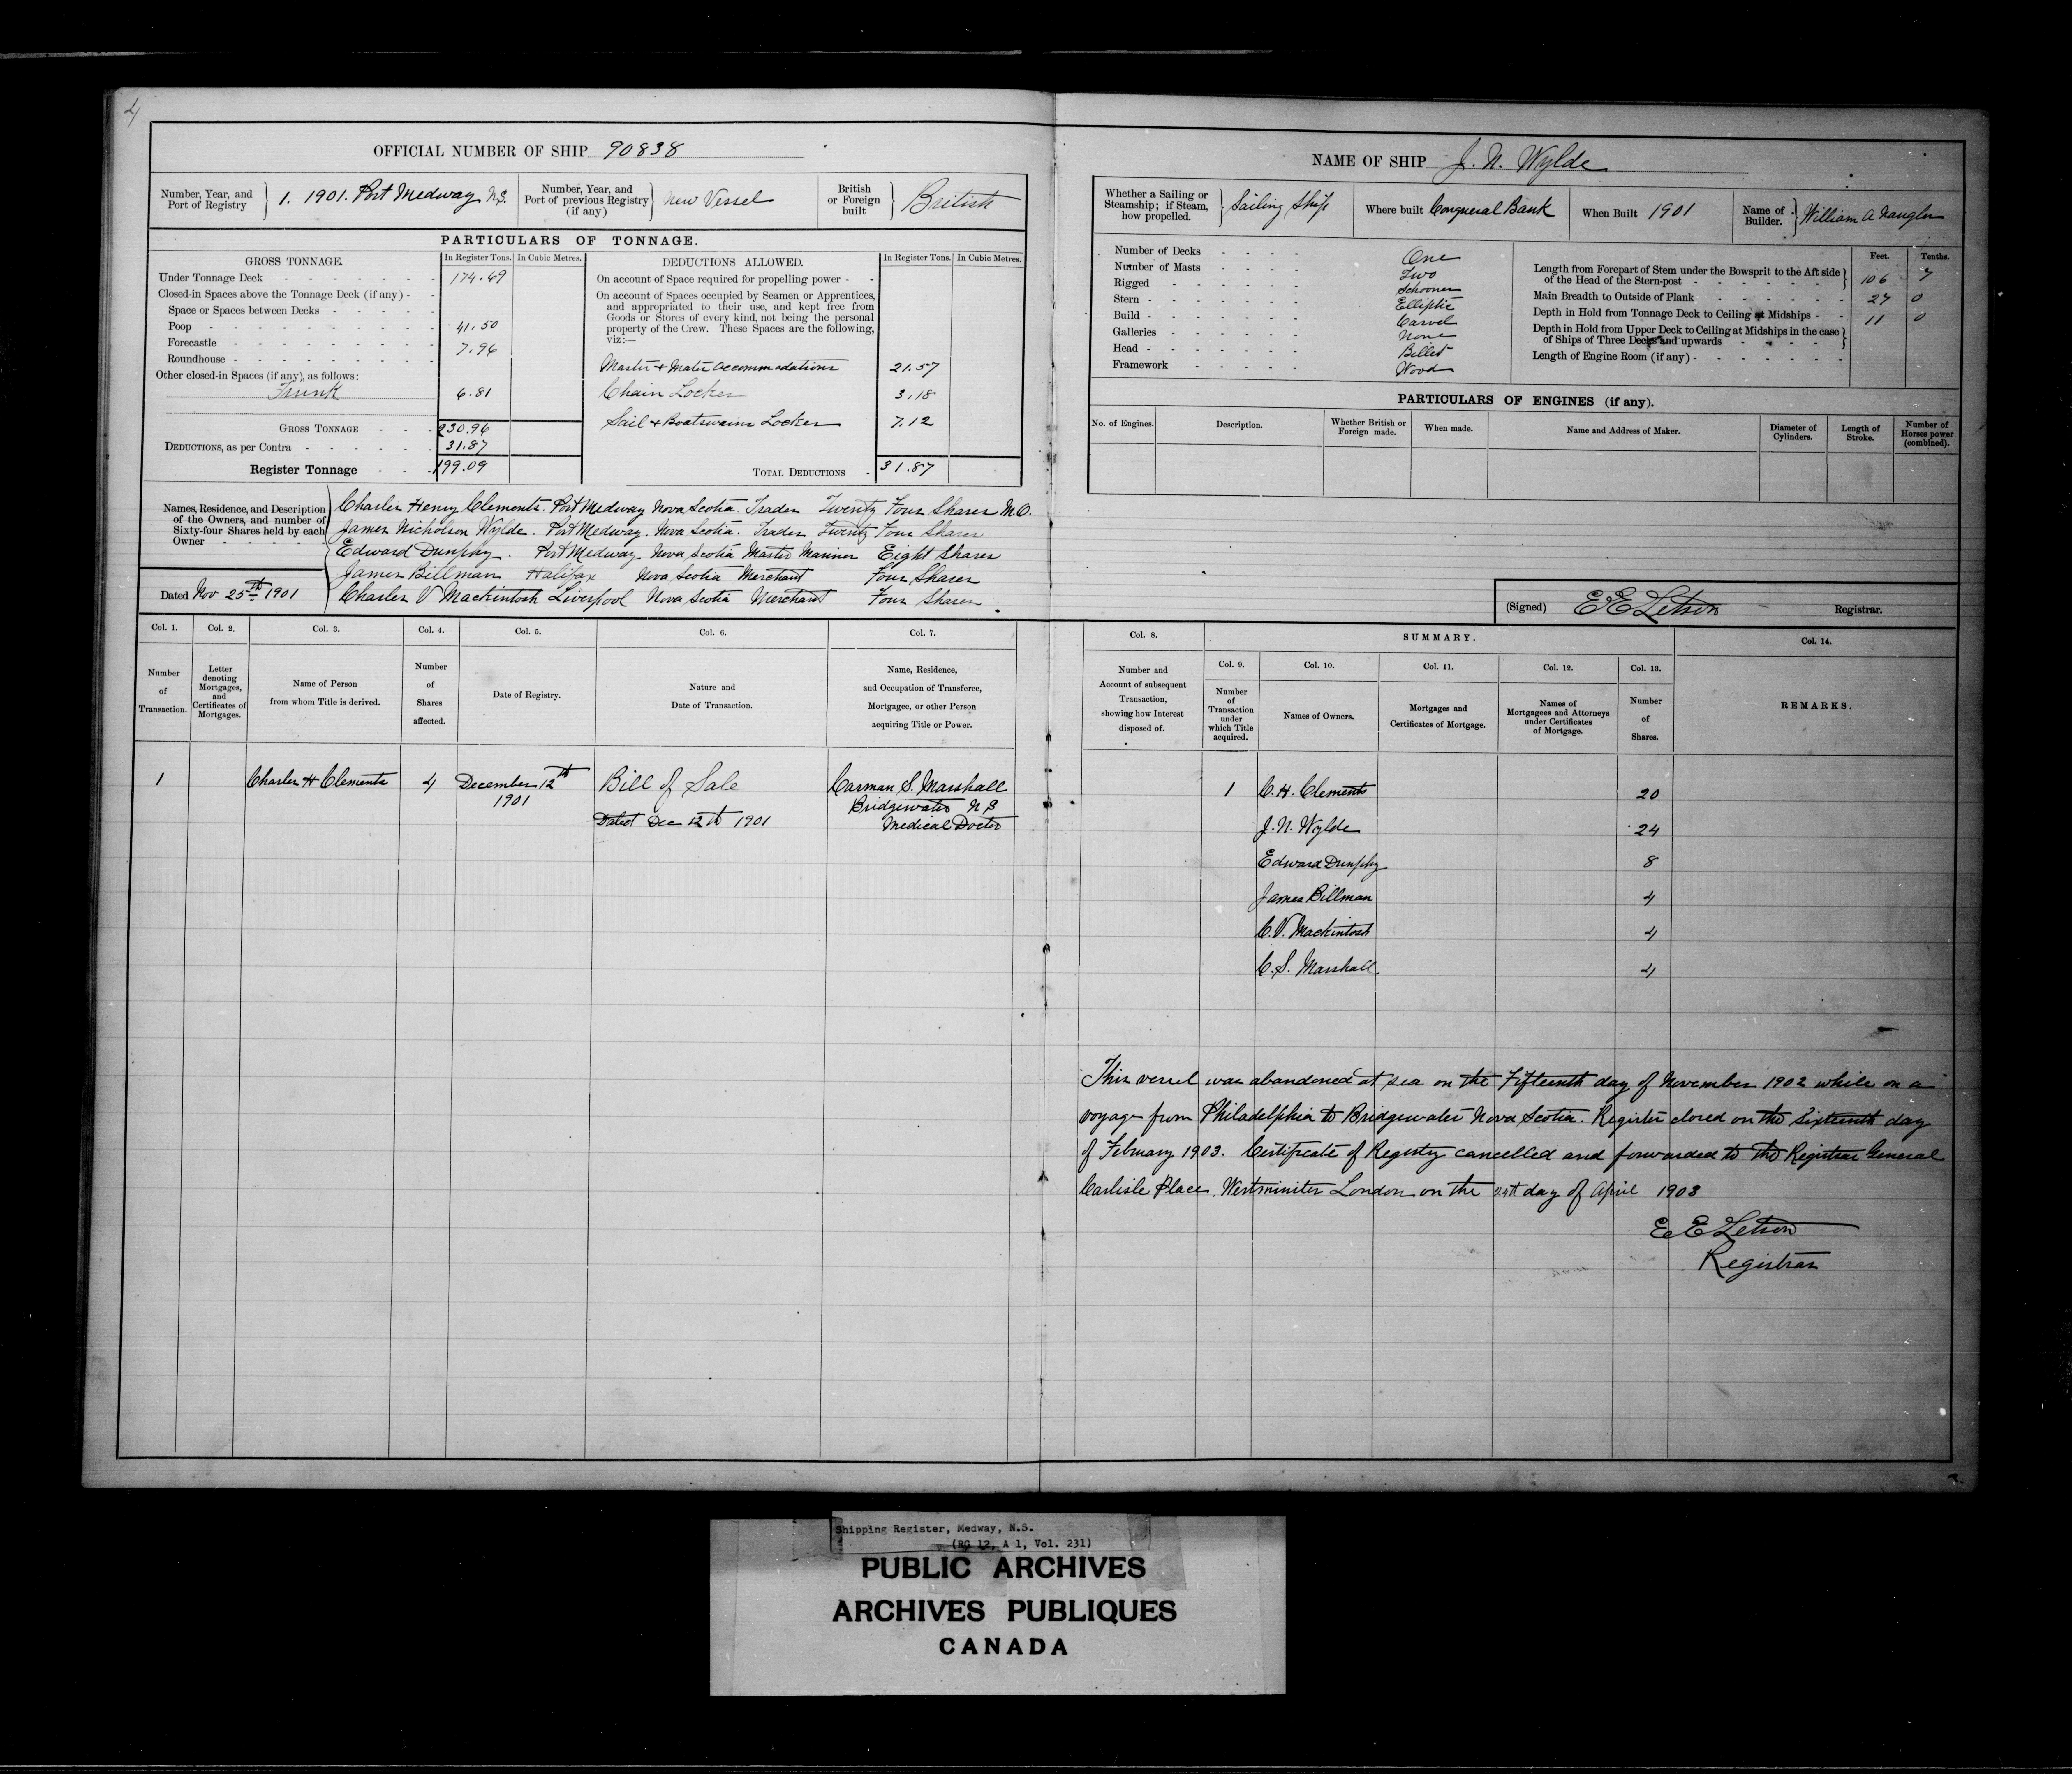 4
OFFICIAL NUMBER OF SHIP 90838
Number, Year, and Port of Registry } 1. 1901. Port Medway N.S.
Number, Year, and Port of previous Registry (if any) } New Vessel
British or Foreign built } British
PARTICULARS OF TONNAGE.
GROSS TONNAGE. In Register Tons. In Cubic Metres.
Under Tonnage Deck 174.69
Closed-in Spaces above the Tonnage Deck (if any)
Space or Spaces between Decks
Poop 41.50
Forecastle 7.96
Roundhouse
Other closed-in Spaces (if any), as follows:
Trunk 6.81
GROSS TONNAGE 230.96
DEDUCTIONS, as per Contra 31.87
Register Tonnage 199.09
DEDUCTIONS ALLOWED. In Register Tons. In Cubic Metres.
On account of Space required for propelling power
On account of Spaces occupied by Seamen or Apprentices,
and appropriated to their use, and kept free from
Goods or Stores of every kind, not being the personal
property of the Crew. These Spaces are the following,
viz:—
Master + Mate accommodations 21.57
Chain Locker 3.18
Sail + Boatswains Locker 7.12
TOTAL DEDUCTIONS 31.87
Names, Residence, and Description
of the Owners, and number of
Sixty-four Shares held by each
Owner
Charles Henry Clements. Port Medway Nova Scotia. Trader Twenty Four Shares M.O.
James Nicholson Wylde. Port Medway. Nova Scotia. Trader Twenty Four Shares
Edward Dunphy. Port Medway. Nova Scotia Master Mariner Eight Shares
James Billman Halifax Nova Scotia Merchant Four Shares
Charles V Mackintosh Liverpool Nova Scotia Merchant Four Shares.
Dated Nov 25th 1901
NAME OF SHIP J. N. Wylde
Whether a Sailing or Steamship; if Steam, how propelled. } Sailing Ship
Where built Conqueral Bank
When Built 1901
Name of Builder. } William A Naugler
Number of Decks One
Number of Masts Two
Rigged Schooner
Stern Elliptic
Build Carvel
Galleries None
Head Billet
Framework Wood
Feet. Tenths.
Length from Forepart of Stem under the Bowsprit to the Aft side
of the Head of the Stern-post 106 7
Main Breadth to Outside of Plank 27 0
Depth in Hold from Tonnage Deck to Ceiling at Midships 11 0
Depth in Hold from Upper Deck to Ceiling at Midships in the case
of Ships of Three Decks and upwards
Length of Engine Room (if any)
PARTICULARS OF ENGINES (if any).
No. of Engines. Description. Whether British or Foreign made. When made. Name and Address of Maker. Diameter of Cylinders. Length of Stroke. Number of Horses power (combined).
(Signed) E E Letson Registrar.
Col. 1. Col. 2. Col. 3. Col. 4. Col. 5. Col. 6. Col. 7.
Number of Transaction.
Letter denoting Mortgages, and Certificates of Mortgages.
Name of Person from whom Title is derived.
Number of Shares affected.
Date of Registry.
Nature and Date of Transaction.
Name, Residence, and Occupation of Transferee, Mortgagee, or other Person acquiring Title or Power.
1 Charles H Clements 4 December 12th 1901 Bill of Sale Carman S. Marshall
Dated Dec 12th 1901 Bridgewater N S
Medical Doctor
Col. 8. SUMMARY. Col. 14.
Col. 9. Col. 10. Col. 11. Col. 12. Col. 13.
Number and Account of subsequent Transaction, showing how Interest disposed of.
Number of Transaction under which Title acquired.
Names of Owners.
Mortgages and Certificates of Mortgage.
Names of Mortgagees and Attorneys under Certificates of Mortgage.
Number of Shares.
REMARKS.
1 C. H. Clements 20
J. N. Wylde 24
Edward Dunphy 8
James Billman 4
C. V. Mackintosh 4
C. S. Marshall. 4
This vessel was abandoned at sea on the Fifteenth day of November 1902 while on a
voyage from Philadelphia to Bridgewater Nova Scotia. Register closed on the Sixteenth day
of February 1903. Certificate of Registry cancelled and forwarded to the Registrar General
Carlisle Place. Westminiter London on the 24th day of April 1903
E E Letson
Registrar
Shipping Register, Medway, N.S.
(RG 12, A 1, Vol. 231)
PUBLIC ARCHIVES
ARCHIVES PUBLIQUES
CANADA